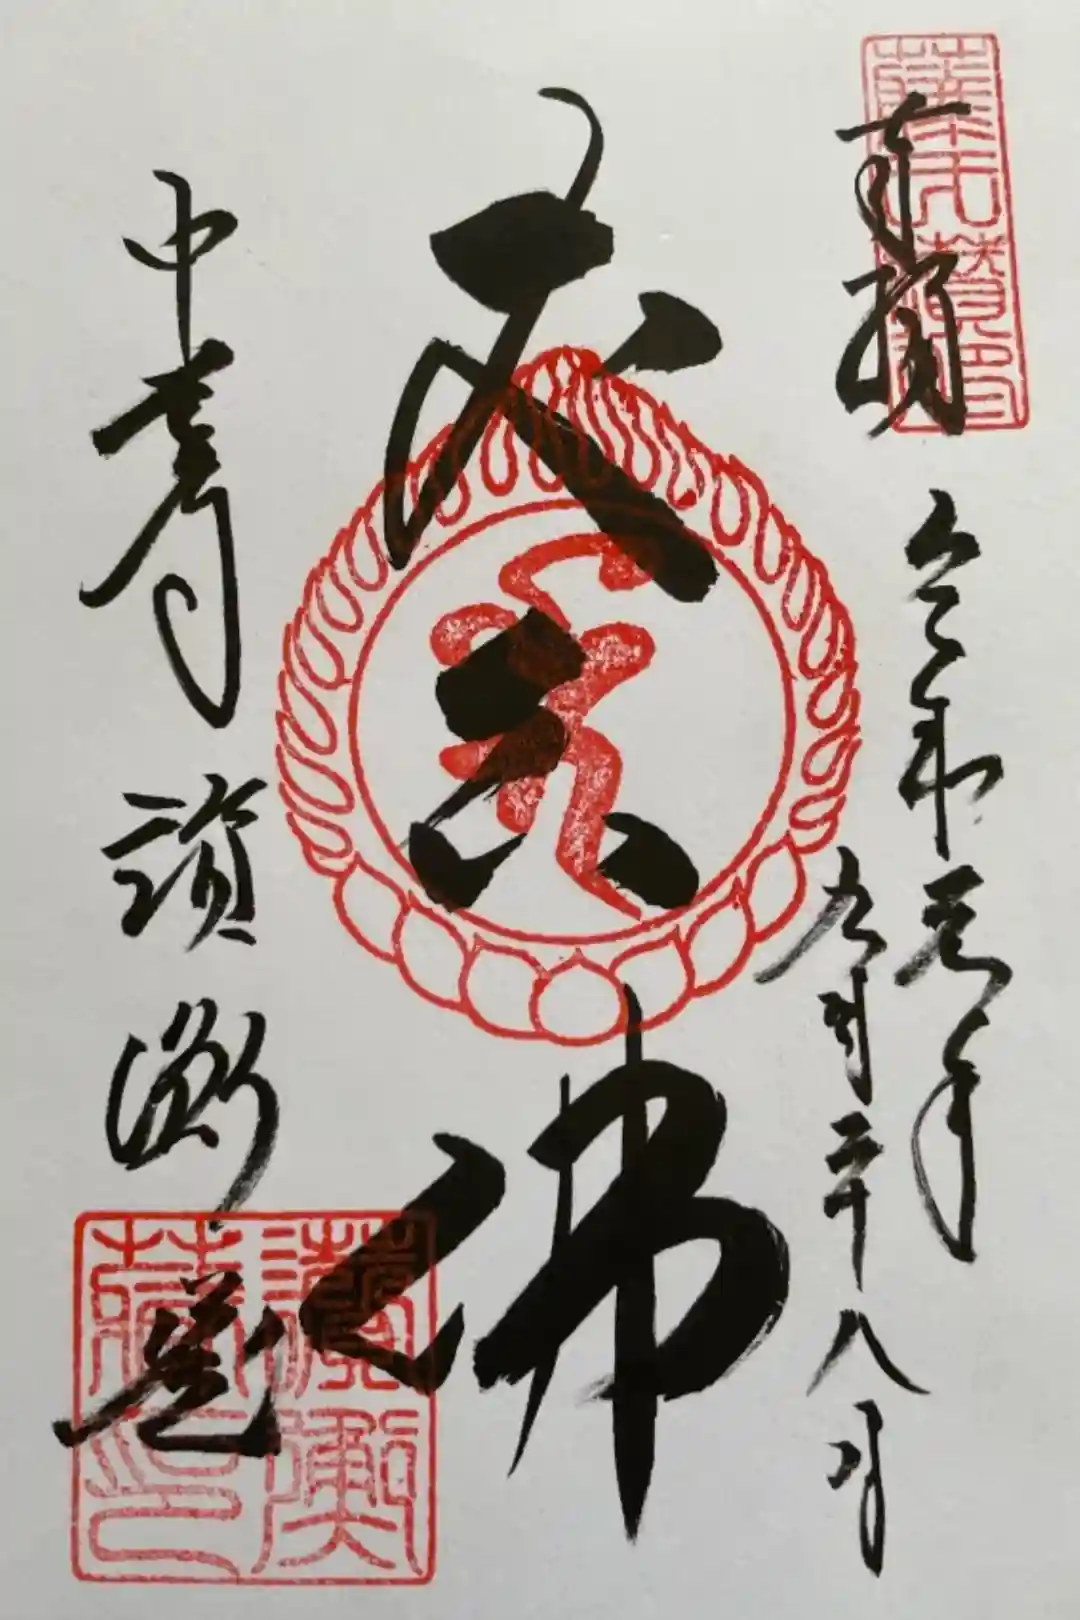 奉拝
令和元年
九月二十八日
丈六佛
中尊寺
讃衡蔵
讃衡
蔵印